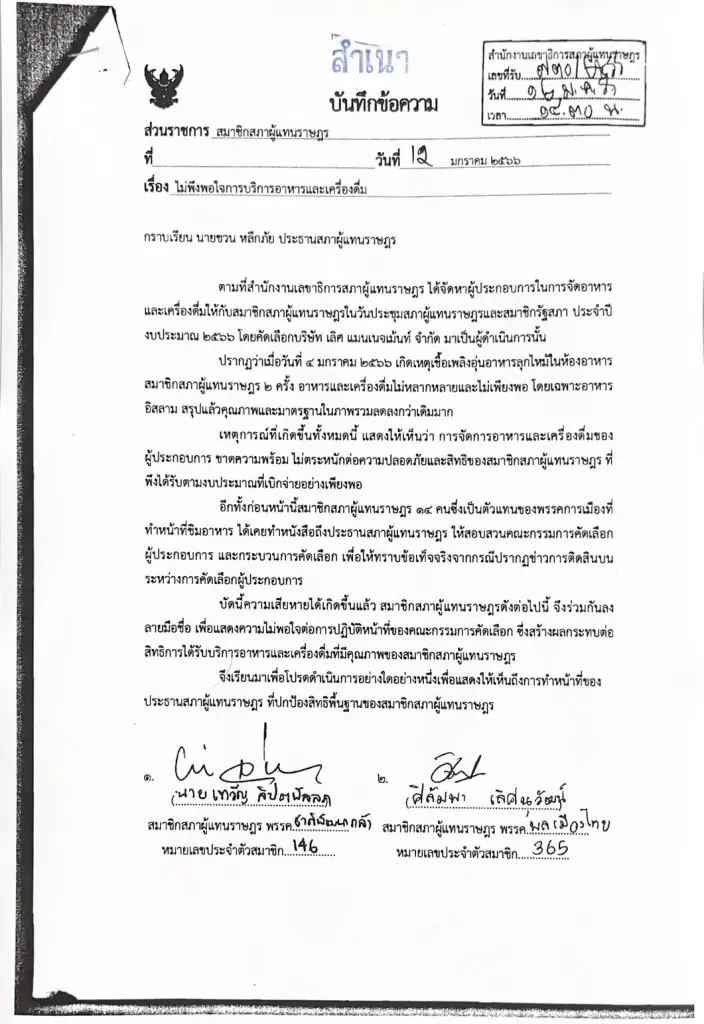 สำเนา
สำนักงานเลขาธิการสภาผู้แทนราษฎร
เลขที่รับ
วันที่ ๑๒ ม.ค.
เวลา ๑๔.๓๐ น.
บันทึกข้อความ
ส่วนราชการ สมาชิกสภาผู้แทนราษฎร
ที่ วันที่ 12 มกราคม ๒๕๖๖
เรื่อง ไม่พึงพอใจการบริการอาหารและเครื่องดื่ม
กราบเรียน นายชวน หลีกภัย ประธานสภาผู้แทนราษฎร
ตามที่สำนักงานเลขาธิการสภาผู้แทนราษฎร ได้จัดหาผู้ประกอบการในการจัดอาหาร
และเครื่องดื่มให้กับสมาชิกสภาผู้แทนราษฎรในวันประชุมสภาผู้แทนราษฎรและสมาชิกรัฐสภา ประจำปี
งบประมาณ ๒๕๖๖ โดยคัดเลือกบริษัท เลิศ แมนเนจเม้นท์ จำกัด มาเป็นผู้ดำเนินการนั้น
ปรากฏว่าเมื่อวันที่ ๔ มกราคม ๒๕๖๖ เกิดเหตุเชื้อเพลิงอุ่นอาหารลุกไหม้ในห้องอาหาร
สมาชิกสภาผู้แทนราษฎร ๒ ครั้ง อาหารและเครื่องดื่มไม่หลากหลายและไม่เพียงพอ โดยเฉพาะอาหาร
อิสลาม สรุปแล้วคุณภาพและมาตรฐานในภาพรวมลดลงกว่าเดิมมาก
เหตุการณ์ที่เกิดขึ้นทั้งหมดนี้ แสดงให้เห็นว่า การจัดการอาหารและเครื่องดื่มของ
ผู้ประกอบการ ขาดความพร้อม ไม่ตระหนักต่อความปลอดภัยและสิทธิของสมาชิกสภาผู้แทนราษฎร ที่
พึงได้รับตามงบประมาณที่เบิกจ่ายอย่างเพียงพอ
อีกทั้งก่อนหน้านี้สมาชิกสภาผู้แทนราษฎร ๑๔ คนซึ่งเป็นตัวแทนของพรรคการเมืองที่
ทำหน้าที่ชิมอาหาร ได้เคยทำหนังสือถึงประธานสภาผู้แทนราษฎร ให้สอบสวนคณะกรรมการคัดเลือก
ผู้ประกอบการ และกระบวนการคัดเลือก เพื่อให้ทราบข้อเท็จจริงจากกรณีปรากฏข่าวการติดสินบน
ระหว่างการคัดเลือกผู้ประกอบการ
บัดนี้ความเสียหายได้เกิดขึ้นแล้ว สมาชิกสภาผู้แทนราษฎรดังต่อไปนี้ จึงร่วมกันลง
ลายมือชื่อ เพื่อแสดงความไม่พอใจต่อการปฏิบัติหน้าที่ของคณะกรรมการคัดเลือก ซึ่งสร้างผลกระทบต่อ
สิทธิการได้รับบริการอาหารและเครื่องดื่มที่มีคุณภาพของสมาชิกสภาผู้แทนราษฎร
จึงเรียนมาเพื่อโปรดดำเนินการอย่างใดอย่างหนึ่งเพื่อแสดงให้เห็นถึงการทำหน้าที่ของ
ประธานสภาผู้แทนราษฎร ที่ปกป้องสิทธิพื้นฐานของสมาชิกสภาผู้แทนราษฎร
๑. ๒.
(นาย เทวัญ ลิปตพัลลภ (ศิลัมพา เลิศนุวัฒน์
สมาชิกสภาผู้แทนราษฎร พรรค ชาติพัฒนากล้า สมาชิกสภาผู้แทนราษฎร พรรค พลเมืองไทย
หมายเลขประจำตัวสมาชิก 146 หมายเลขประจำตัวสมาชิก 365